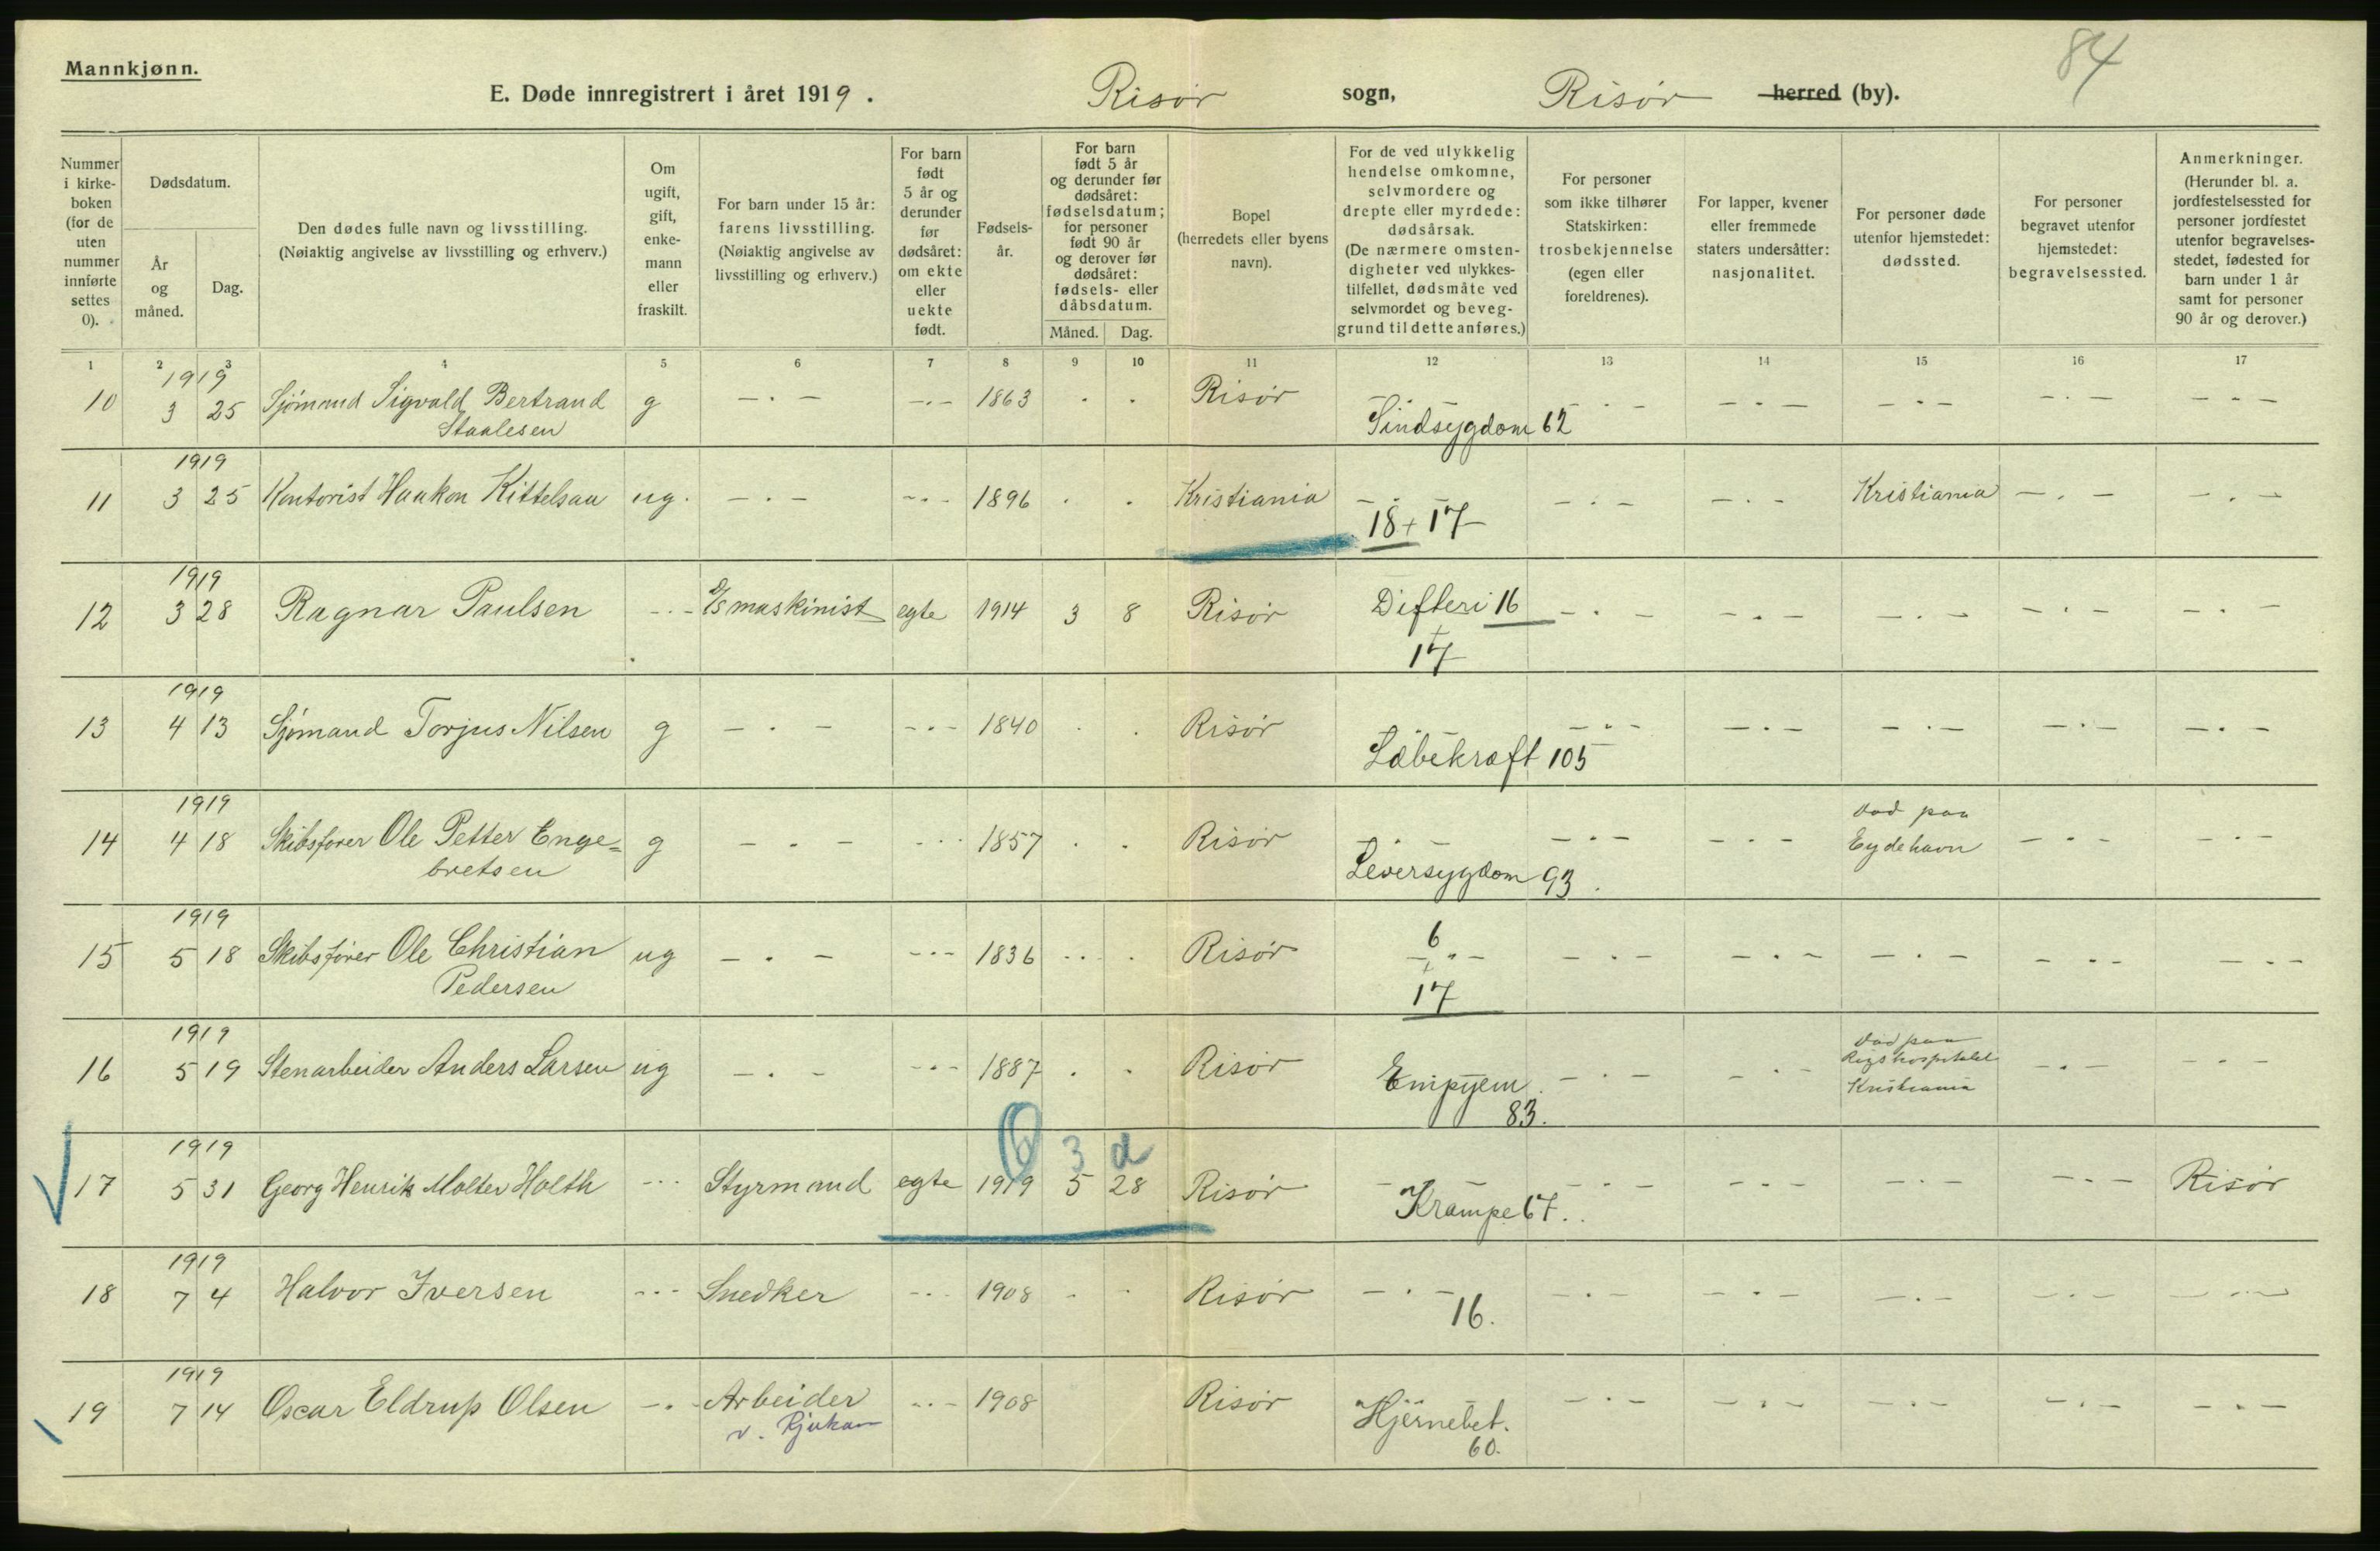 84
Mannkjønn.
E. Døde innregistrert i året 1919. Risør sogn, Risør herred (by).
Nummer i kirke-boken (for de uten nummer innførte settes 0).
Dødsdatum.
År og måned.
Dag.
Den dødes fulle navn og livsstilling.
(Nøiaktig angivelse av livsstilling og erhverv.)
Om ugift, gift, enke-mann eller fraskilt.
For barn under 15 år: farens livsstilling. (Nøiaktig angivelse av livsstilling og erhverv.)
For barn født 5 år og derunder før dødsåret: om ekte eller uekte født.
Fødsels-år.
For barn født 5 år og derunder før dødsåret: fødselsdatum; for personer født 90 år og derover før dødsåret: fødsels- eller dåbsdatum.
Måned. Dag.
Bopel (herredets eller byens navn).
For de ved ulykkelig hendelse omkomne, selvmordere og drepte eller myrdede: dødsårsak. (De nærmere omsten-digheter ved ulykkes-tilfellet, dødsmåte ved selvmordet og beveg-grund til dette anføres.)
For personer som ikke tilhører Statskirken: trosbekjennelse (egen eller foreldrenes).
For lapper, kvener eller fremmede staters undersåtter: nasjonalitet.
For personer døde utenfor hjemstedet: dødssted.
For personer begravet utenfor hjemstedet: begravelsessted.
Anmerkninger. (Herunder bl. a. jordfestelsessted for personer jordfestet utenfor begravelses-stedet, fødested for barn under 1 år samt for personer 90 år og derover.)
1 2 3 4 5 6 7 8 9 10 11 12 13 14 15 16 17
1919
10 3 25 Sjømand Sigvald Bertrand g - . - - . - 1863 . . Risør - . - - . - - . - - . - - . - - . -
Staalesen Sindsygdom 62
1919
11 3 25 Kontorist Haakon Kittelsen ug. - . - - . - 1896 . . Kristiania - . - - . - - . - Kristiania - . - - . -
18 + 17
1919
12 3 28 Ragnar Paulsen - . - D/S maskinist egte 1914 3 8 Risør Difteri 16 - . - - . - - . - - . - - . -
+
17
1919
13 4 13 Sjømand Torjus Nilsen g - . - - . - 1840 . . Risør - . - - . - - . - - . - - . -
Læbekræft 105
1919
14 4 18 Skibsfører Ole Petter Enge= g - . - - . - 1857 . . Risør - . - - . - - . - Død paa Eydehavn - . - - . -
bretsen Leversygdom 93.
1919
15 5 18 Skibsfører Ole Christian ug - . - - . - 1836 . . Risør 6 - . - - . - - . - - . - - . - - . -
Pedersen + 17
1919
16 5 19 Stenarbeider Anders Larsen ug - . - - . - 1887 . . Risør Empyem 83. - . - - . - Død paa Rigshospitalet Kristiania - . - - . -
1919
6 3 d
17 5 31 Georg Henrik Molter Holth - . - Styrmand egte 1919 5 28 Risør - . - - . - - . - - . - - . - Risør
Krampe 67.
1919
18 7 4 Halvor Iversen - . - Snedker - . - 1908 . . Risør - . - - . - - . - - . - - . - - . -
16.
1919
19 7 14 Oscar Eldrup Olsen - . - Arbeider - . - 1908 Risør Hjernebet. - . - - . - - . - - . - - . -
v. Rjukan 60.